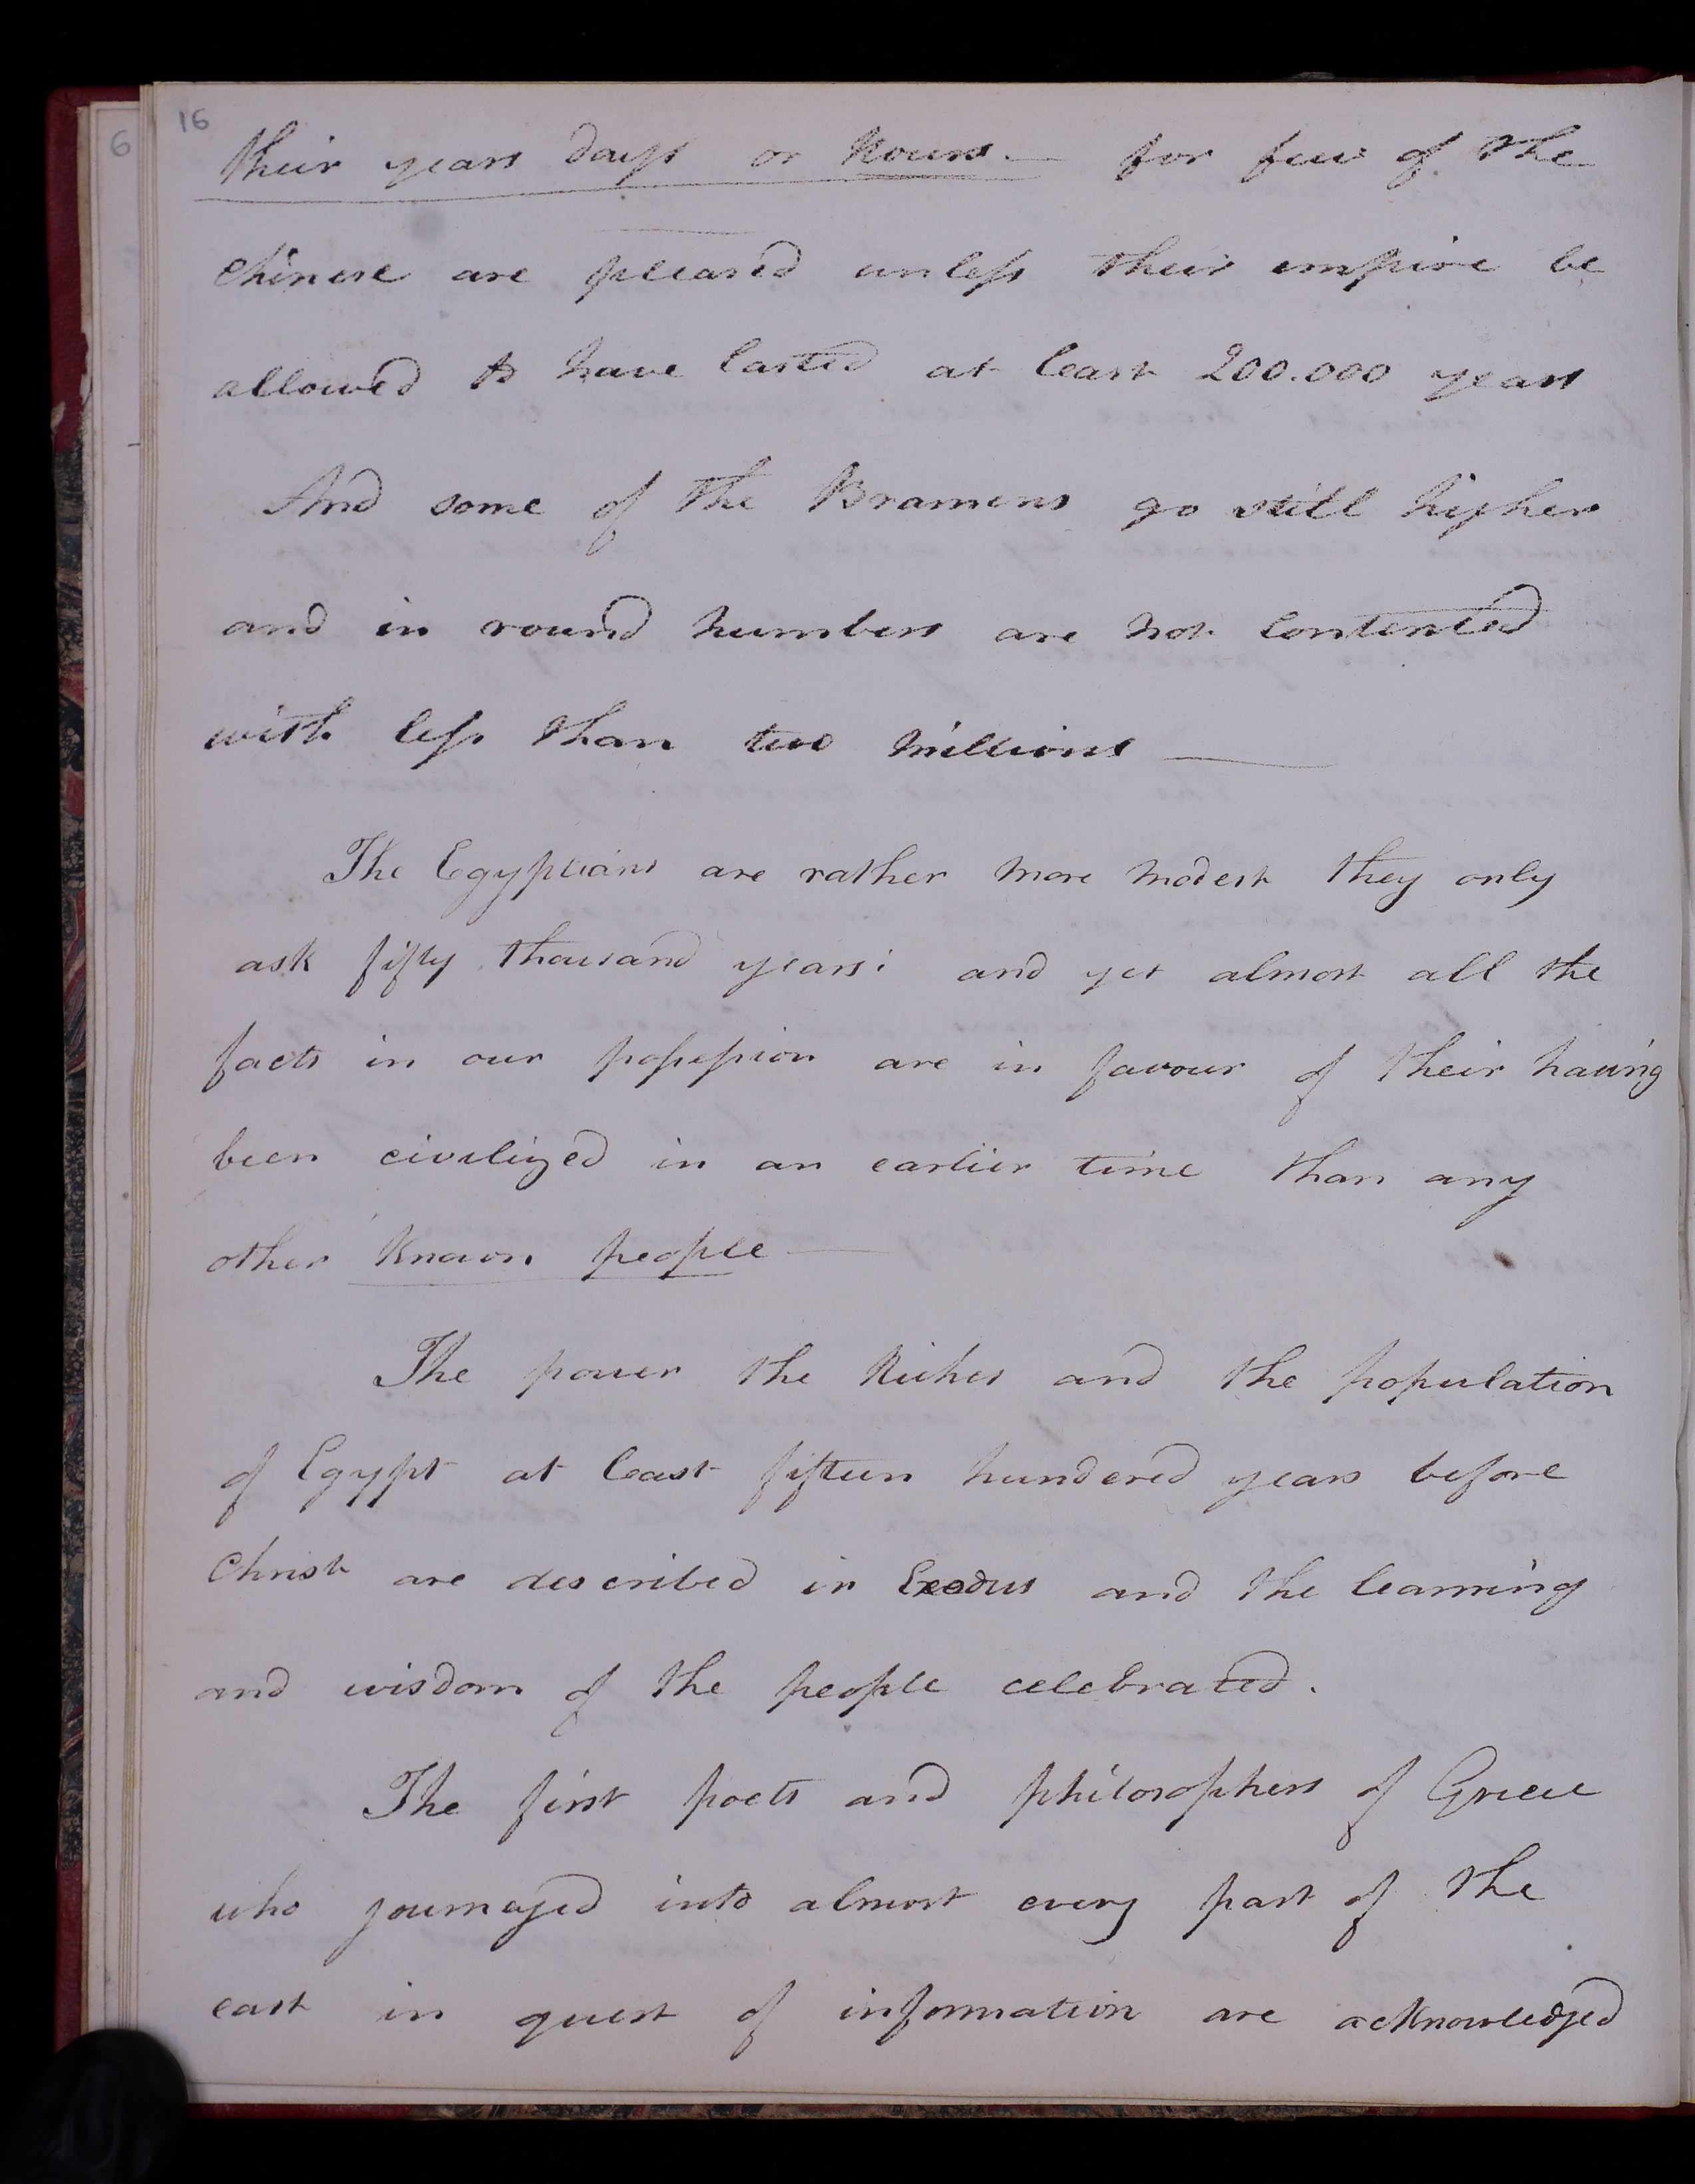 16
6
their years days or hours. — for few of the
Chinese are pleased unless their empire be
allowed to have lasted at least 200.000 years
And some of the Bramens go still higher
and in round numbers are not contented
with less than two millions —
The Egyptians are rather more modest they only
ask fifty thousand years; and yet almost all the
facts in our possession are in favour of their having
been civilized in an earlier time than any
other known people —
The power the Riches and the population
of Egypt at least fifteen hundered years before
Christ are described in Exodus and the learning
and wisdom of the people celebrated.
The first poets and philosophers of Greece
who journeyed into almost every part of the
east in quest of information are acknowledged